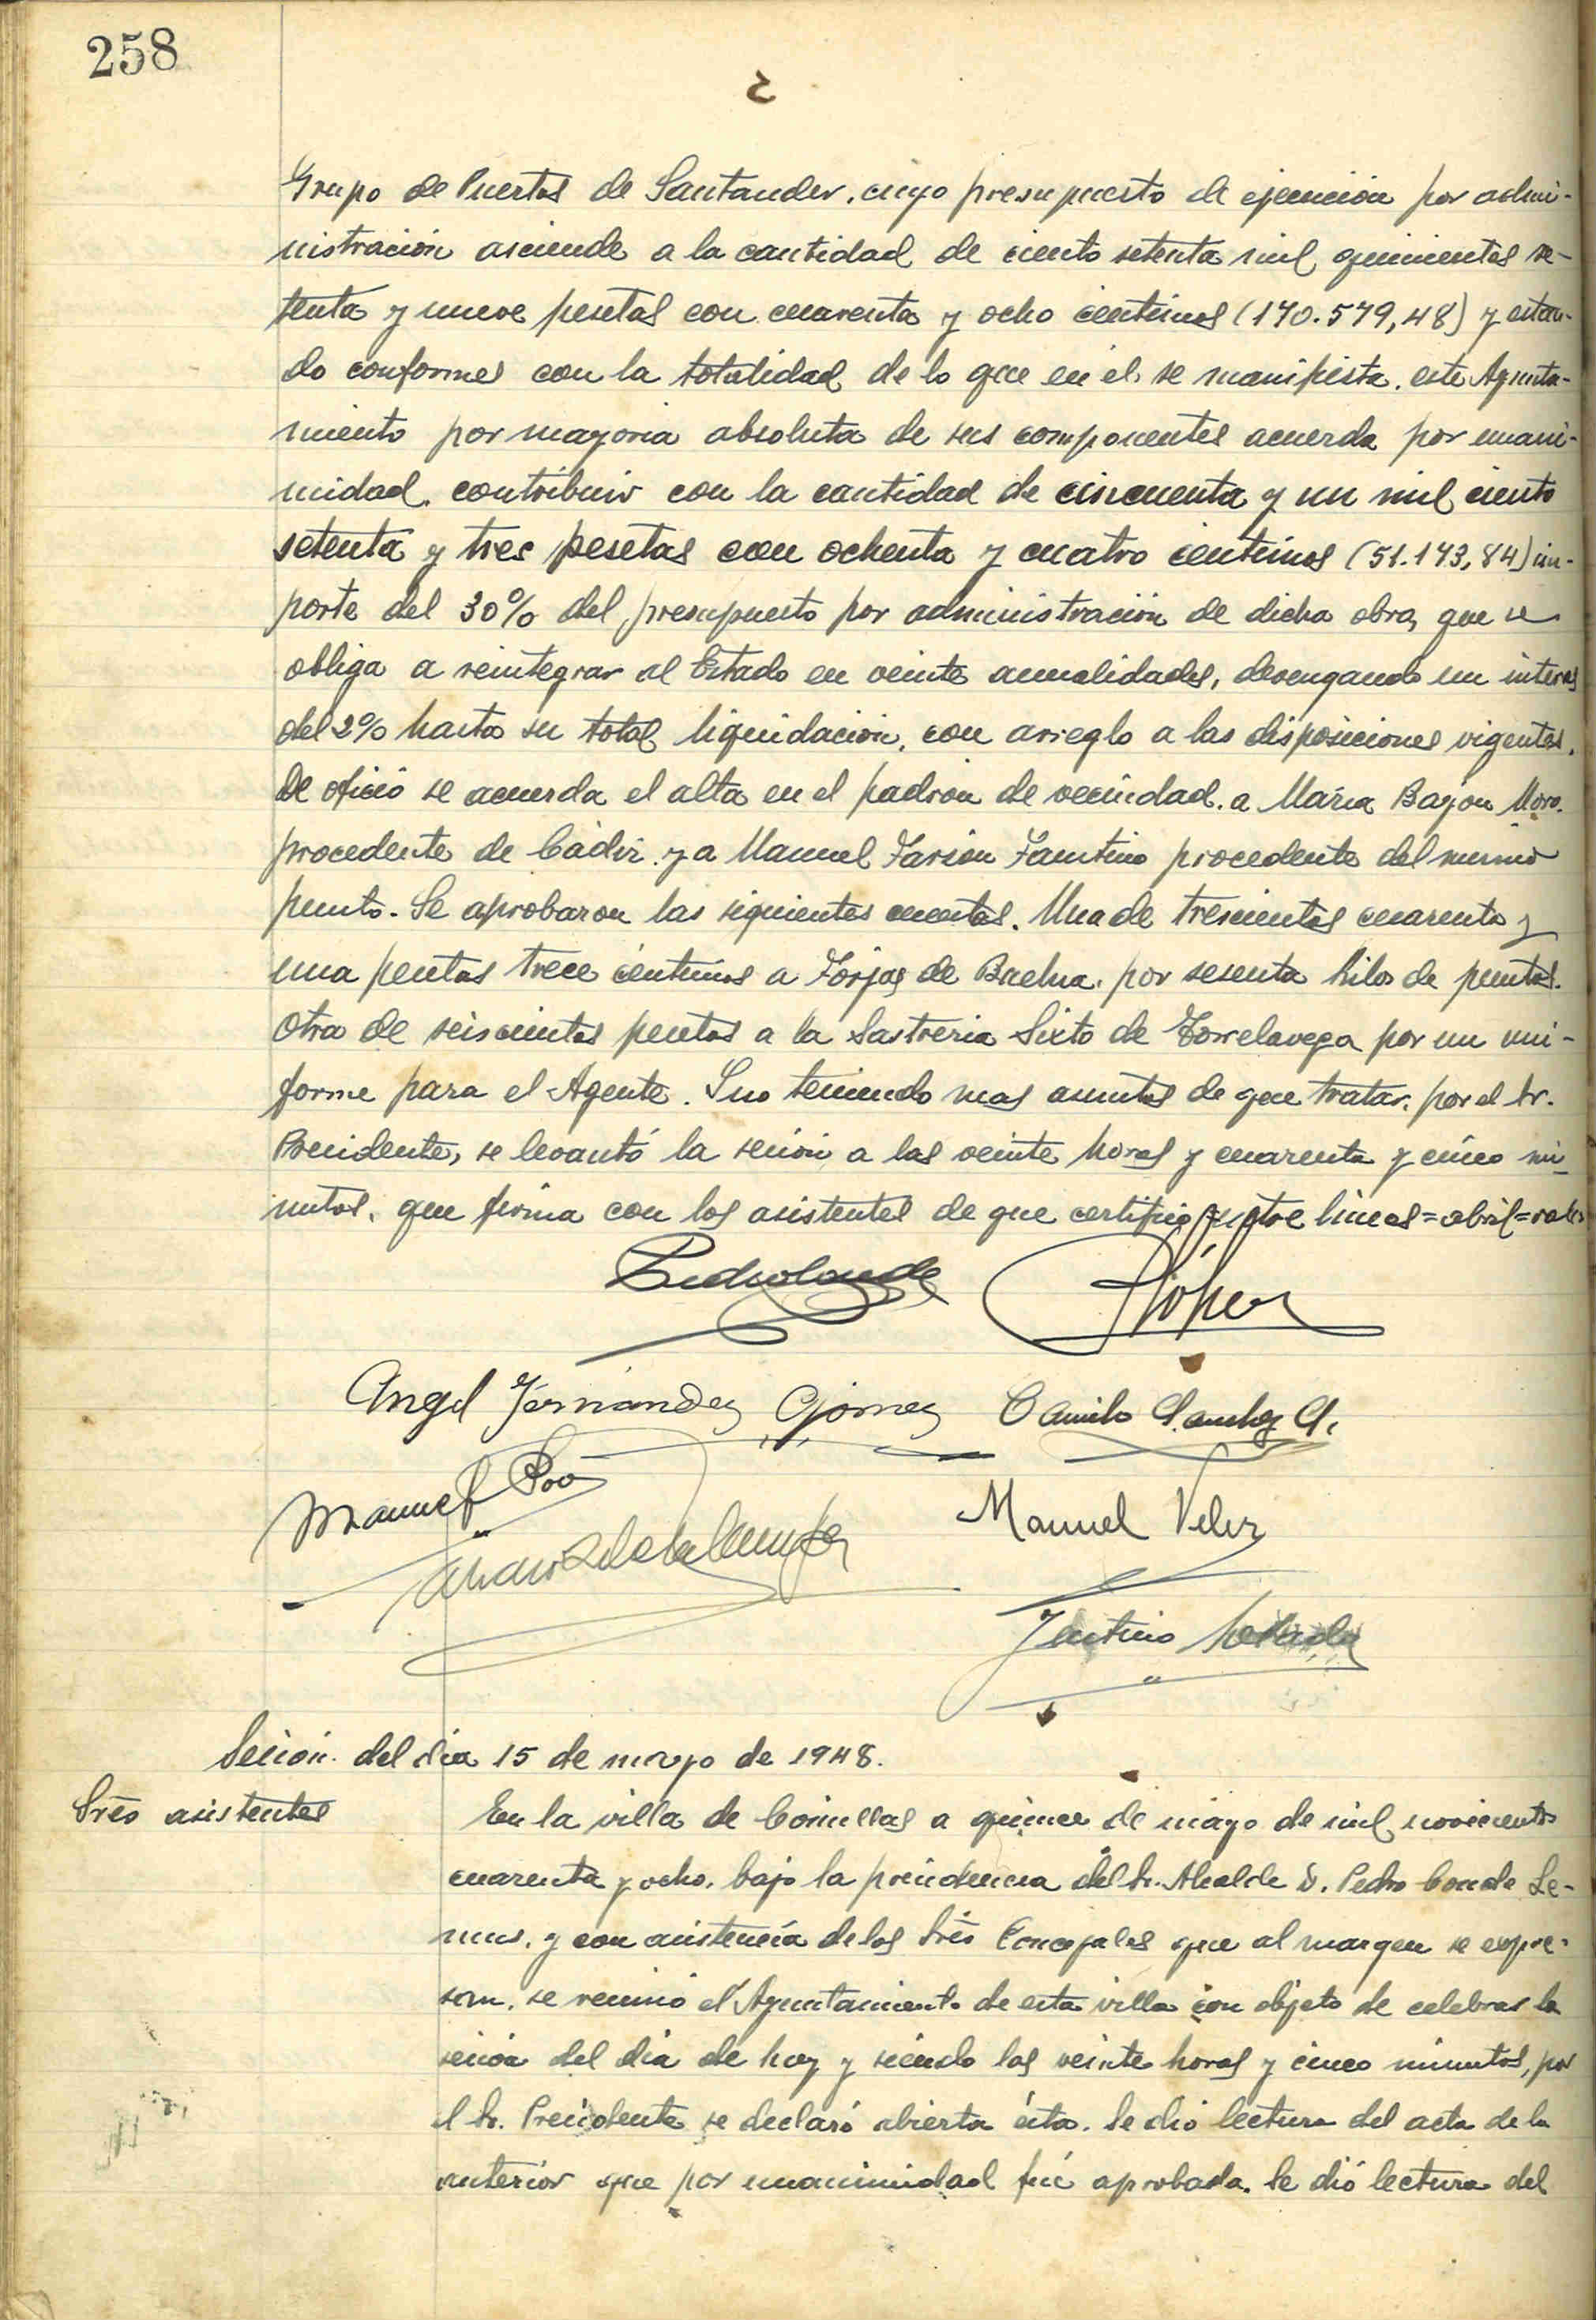 258
Grupo de Puertos de Santander, cuyo presupuesto de ejecución por admi-
nistración asciende a la cantidad de ciento setenta mil quinientas se-
tenta y nueve pesetas con cuarenta y ocho centimos (170.579,48) y estan-
do conformes con la totalidad de lo que en el se manifiesta, este Ayunta-
miento por mayoria absoluta de sus componentes acuerda por unani-
midad, contribuir con la cantidad de cincuenta y un mil ciento
setenta y tres pesetas con ochenta y cuatro centimos (51.173,84) im-
porte del 30% del presupuesto por administración de dicha obra, que se
obliga a reintegrar al Estado en veinte anualidades, devengando un interes
del 2% hasta su total liquidación, con arreglo a las disposiciones vigentes.
De oficio se acuerda el alta en el padrón de vecindad, a Maria Bayon Moro,
procedente de Cádiz y a Manuel Faustino procedente del mismo
punto. Se aprobaron las siguientes cuentas. Una de trescientas cuarenta y
una pesetas trece céntimos a Forjas de Buelna, por sesenta kilos de puntas.
Otra de seiscientas pesetas a la Sastreria Sixto de Torrelavega por un uni-
forme para el Agente. Y no teniendo mas asuntos de que tratar, por el Sr.
Presidente, se levantó la sesión a las veinte horas y cuarenta y cinco mi-
nutos, que firma con los asistentes de que certifico entre lineas=abril=vale
Pedro Conde López
Angel Fernandez Gomez Camilo Sanchez A.
Manuel Poo
Manuel Velez
de la Cuesta
Faustino
Sesión del dia 15 de mayo de 1948.
Srēs asistentes
En la villa de Comillas a quince de mayo de mil novecientos
cuarenta y ocho, bajo la presidencia del Sr. Alcalde D. Pedro Conde Le-
mus, y con asistencia de los Srēs Concejales que al margen se expre-
san, se reunió el Ayuntamiento de esta villa con objeto de celebrar la
sesión del dia de hoy y siendo las veinte horas y cinco minutos, por
el Sr. Presidente se declaró abierta ésta. Se dió lectura del acta de la
anterior que por unanimidad fué aprobada. Se dió lectura del